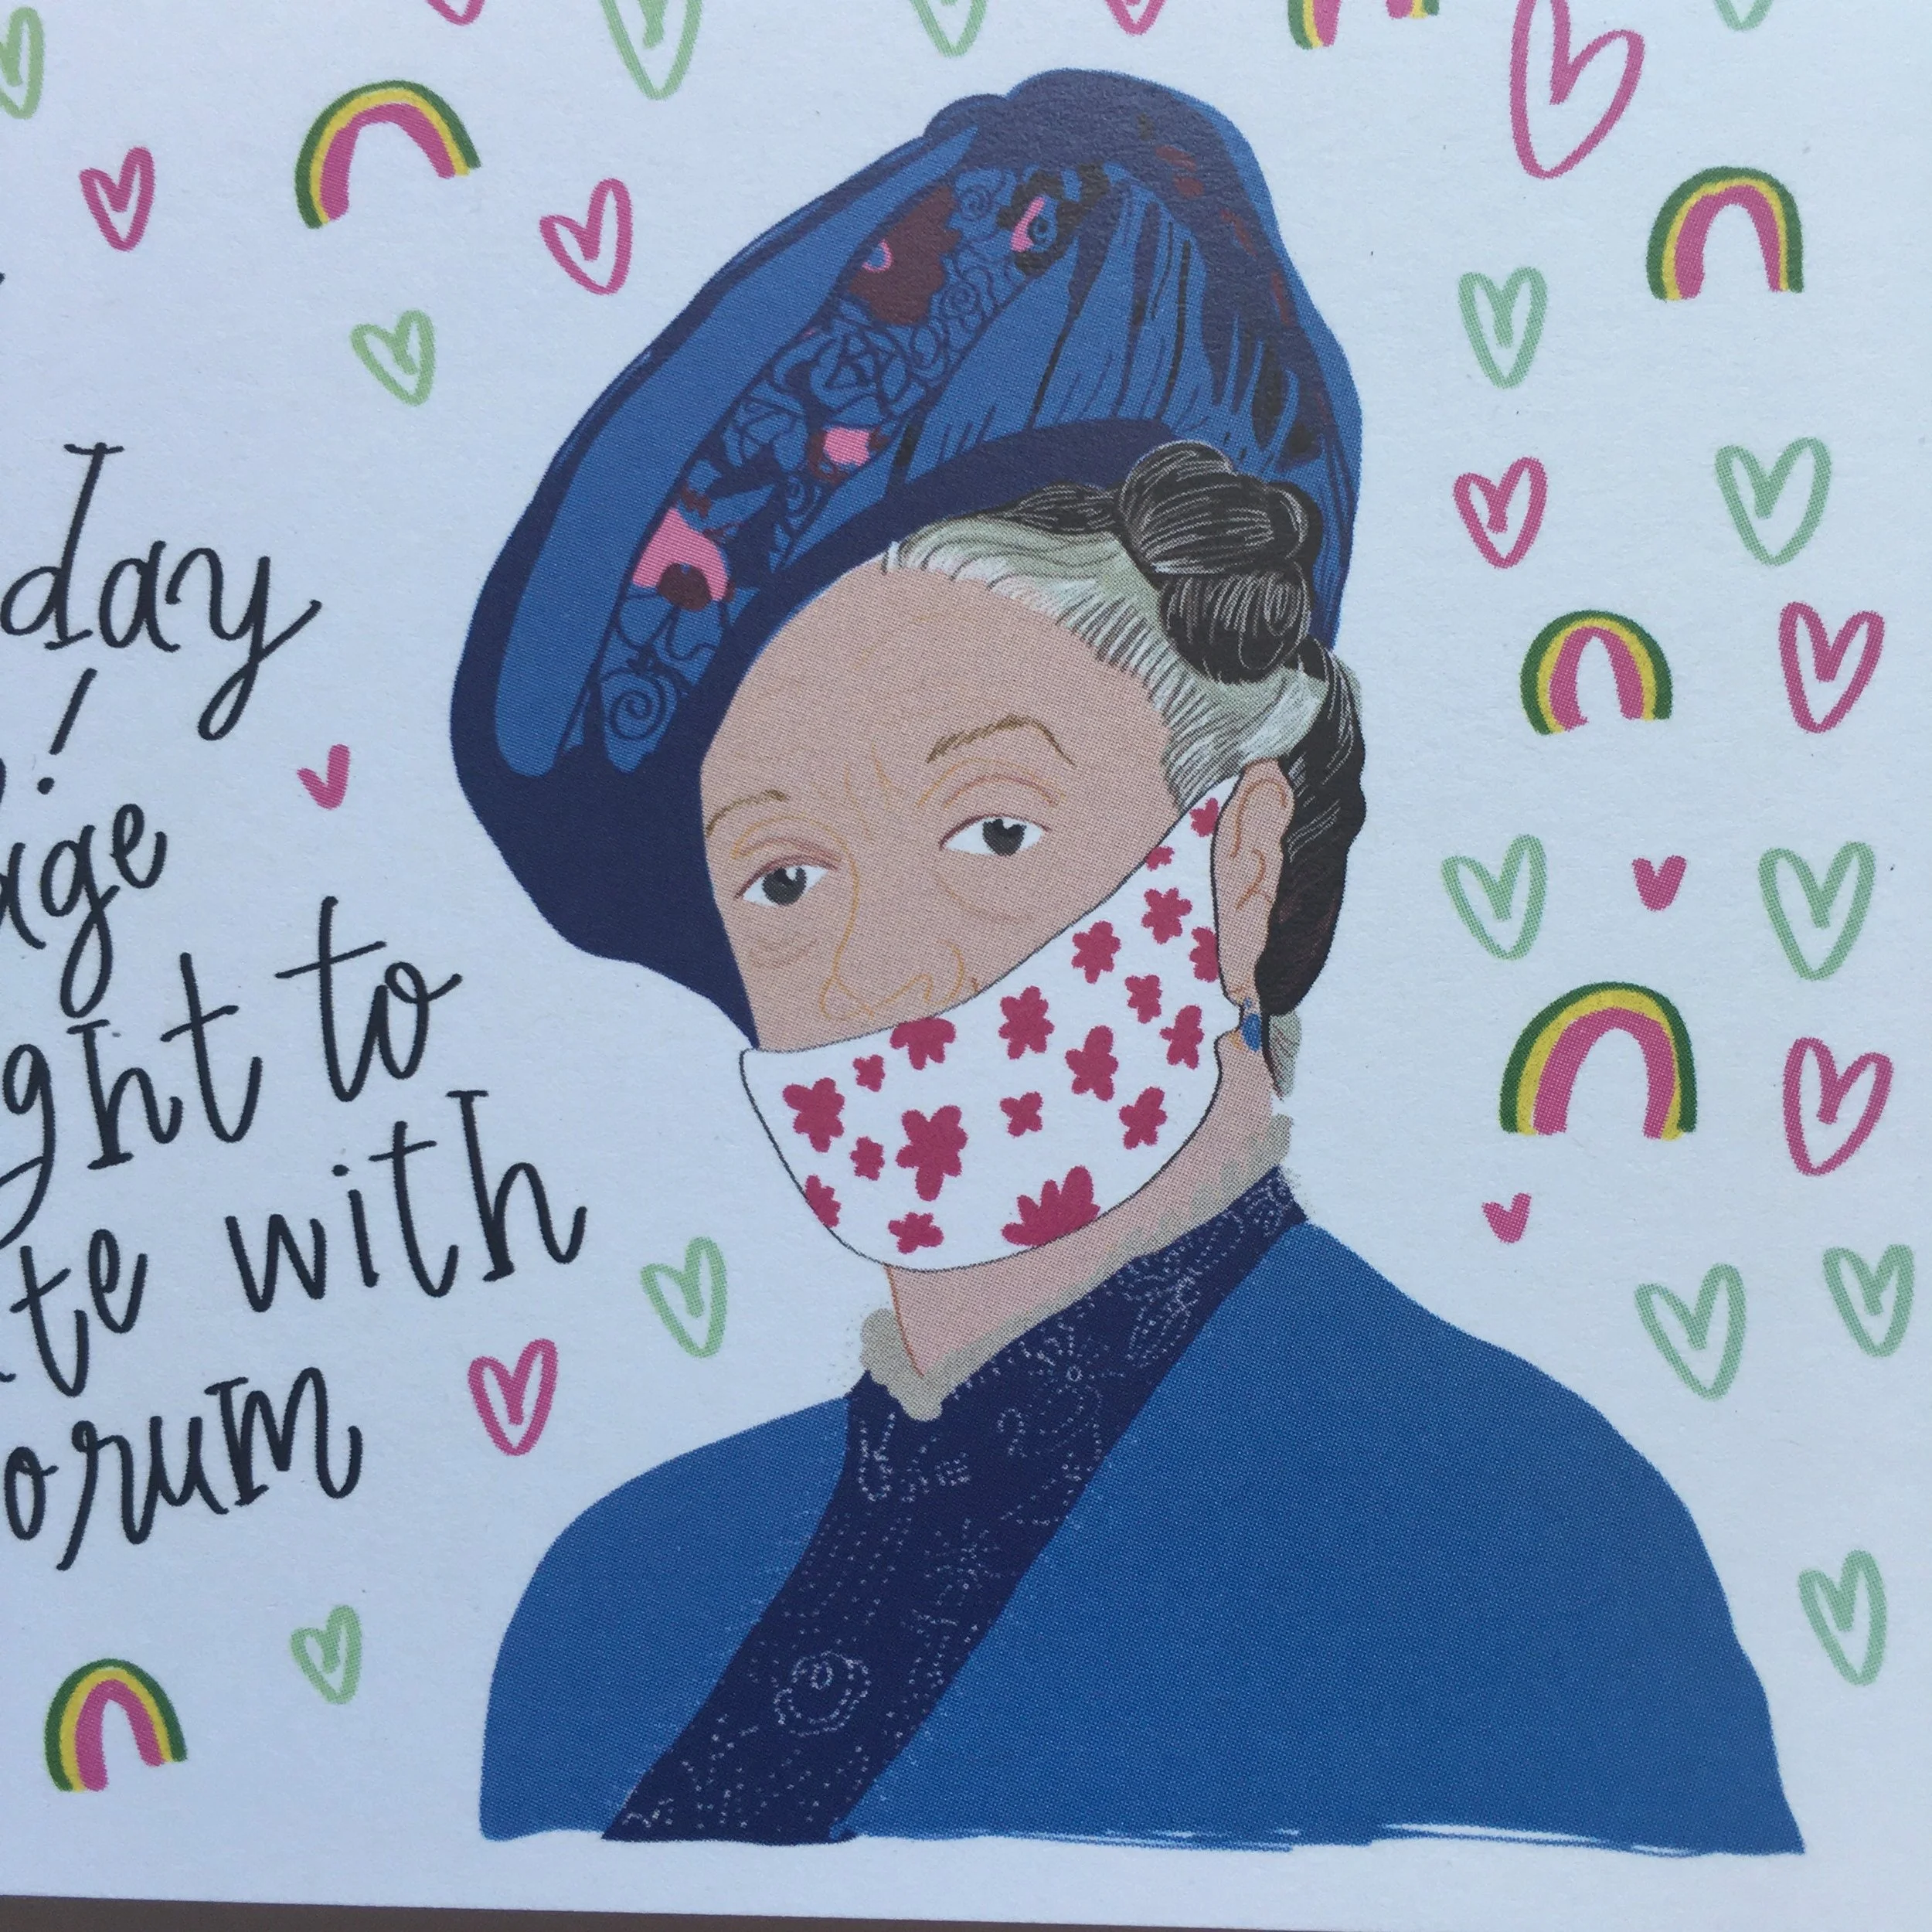 day
!
age
ght to
te with
orum